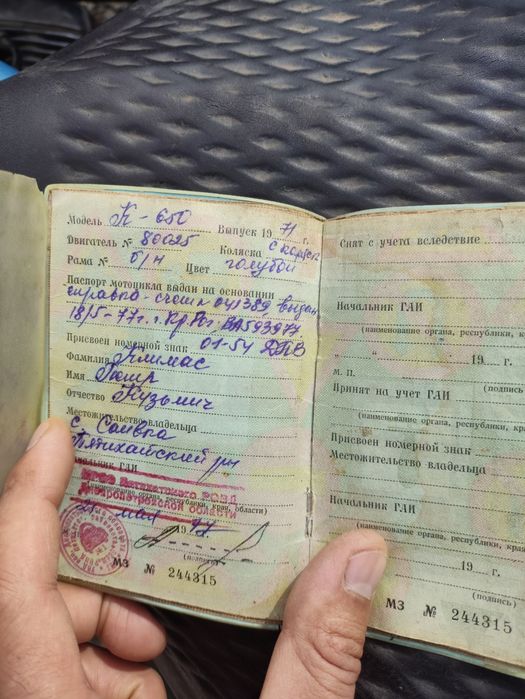 Модель К-650 Выпуск 1971 г.
Двигатель № 80025 Коляска с коляск
Рама № б/н Цвет голубой
Паспорт мотоцикла выдан на основании
справка-счет 041389 выдан
18/5-77г. г. Кр Рог ВА593977
Присвоен номерной знак 01-54 ДПВ
Фамилия Климас
Имя Петр
Отчество Кузьмич
Местожительство владельца
с. Саивка
Пятихатский рн
Начальник ГАИ
Пятихатского РОВД
(наименование органа, республики, края, области)
Днепропетровской области
25 мая 1977
(подпись)
МЗ № 244315
Снят с учета вследствие
Начальник ГАИ
(наименование органа, республики, кр
„ “ 19 г.
М. П. (подпись)
Принят на учет ГАИ
(наименование органа, республики, кр
Присвоен номерной знак
Местожительство владельца
Начальник ГАИ
(наименование органа, республики, кра
19 г.
(подпись)
МЗ № 244315